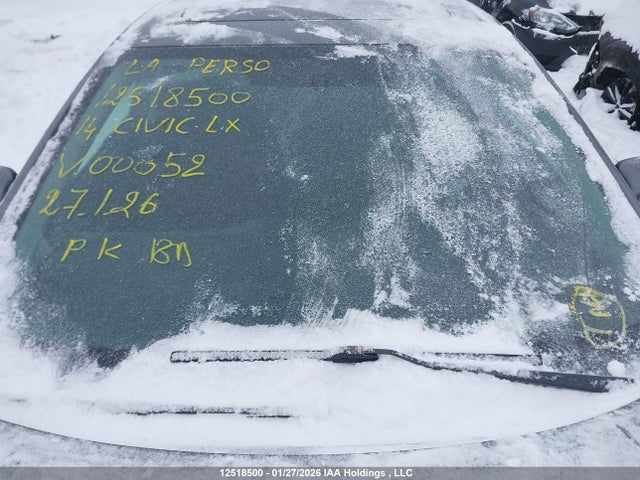 LA PERSO
12518500
14 CIVIC LX
V00052
27.1.26
PK BD
12518500 - 01/27/2026 IAA Holdings , LLC